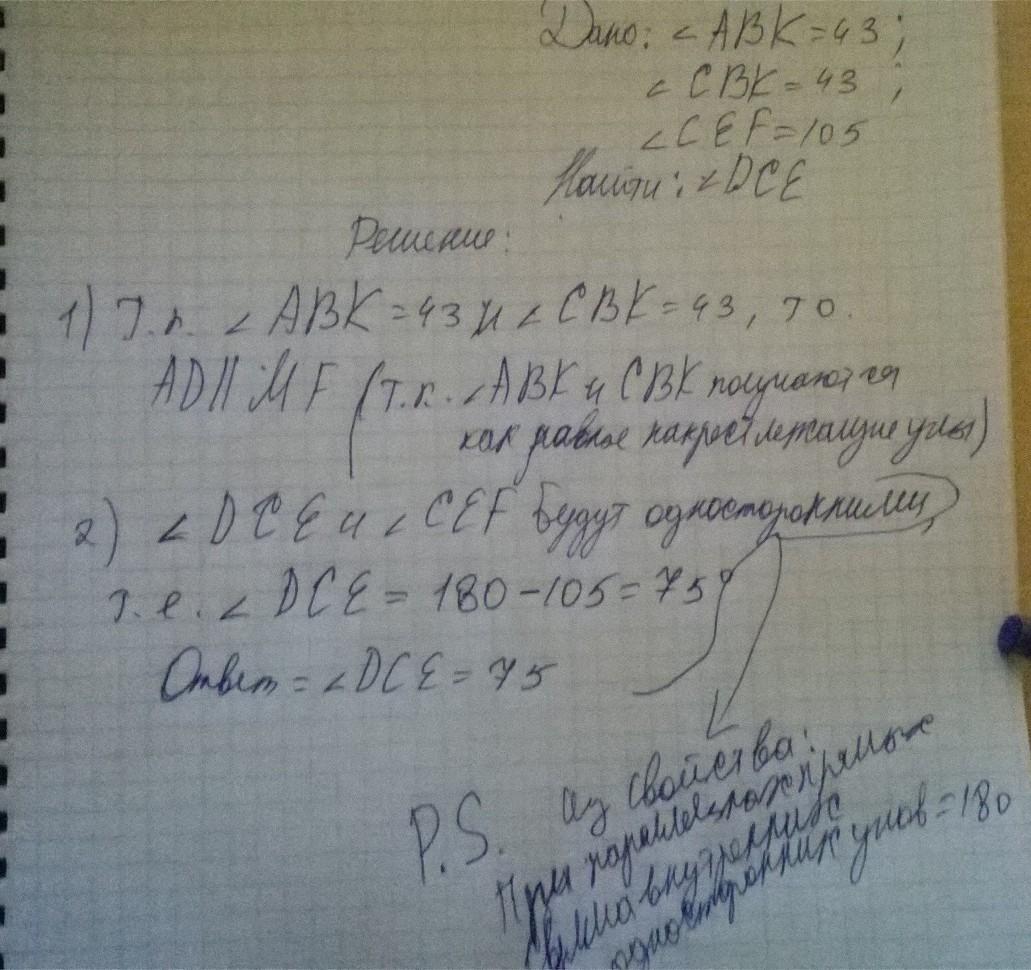 Дано: ∠ABK=43;
∠CBK=43;
∠CEF=105
Найти: ∠DCE
Решение:
1) Т.к. ∠ABK=43 и ∠CBK=43, то.
AD||MF (т.к. ∠ABK и CBK получаются
как равные накрест лежащие углы)
2) ∠DCE и ∠CEF будут односторонними,
т.е. ∠DCE = 180-105=75°
Ответ = ∠DCE = 75
P.S. Из свойства:
При параллельных прямых
сумма внутренних
односторонних углов = 180